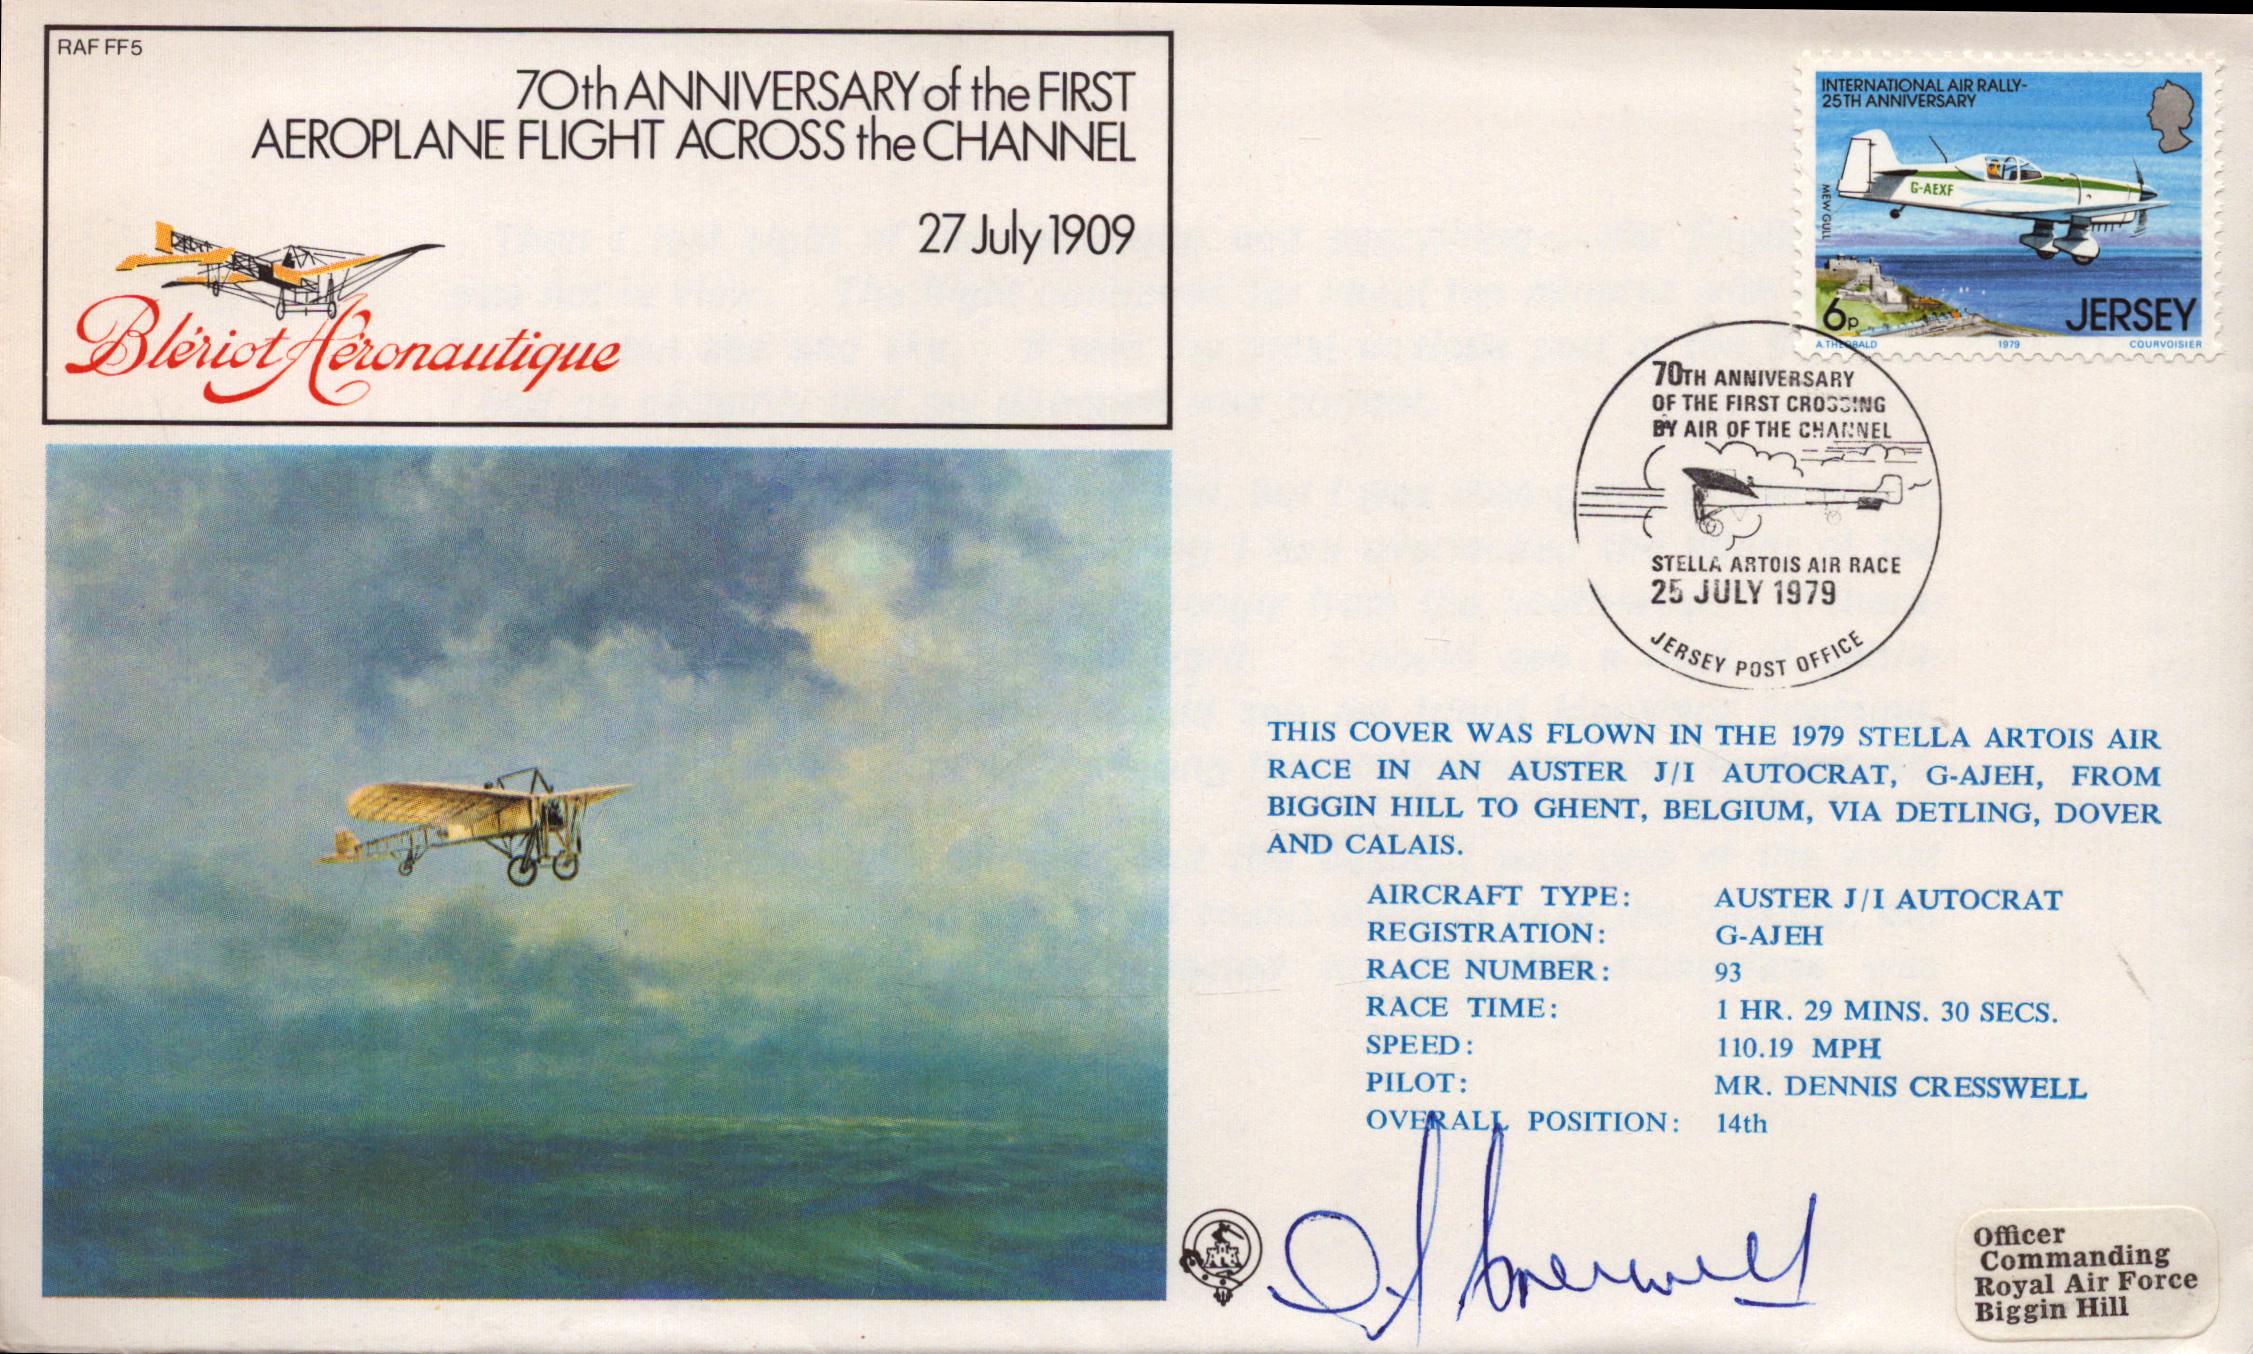 RAF FF5
70th ANNIVERSARY of the FIRST
AEROPLANE FLIGHT ACROSS the CHANNEL
27 July 1909
Blériot Aéronautique
INTERNATIONAL AIR RALLY-
25TH ANNIVERSARY
G-AEXF
MEW GULL
6p
JERSEY
A.THEOBALD 1979 COURVOISIER
70TH ANNIVERSARY
OF THE FIRST CROSSING
BY AIR OF THE CHANNEL
STELLA ARTOIS AIR RACE
25 JULY 1979
JERSEY POST OFFICE
THIS COVER WAS FLOWN IN THE 1979 STELLA ARTOIS AIR
RACE IN AN AUSTER J/I AUTOCRAT, G-AJEH, FROM
BIGGIN HILL TO GHENT, BELGIUM, VIA DETLING, DOVER
AND CALAIS.
AIRCRAFT TYPE: AUSTER J/I AUTOCRAT
REGISTRATION: G-AJEH
RACE NUMBER: 93
RACE TIME: 1 HR. 29 MINS. 30 SECS.
SPEED: 110.19 MPH
PILOT: MR. DENNIS CRESSWELL
OVERALL POSITION: 14th
Officer
Commanding
Royal Air Force
Biggin Hill